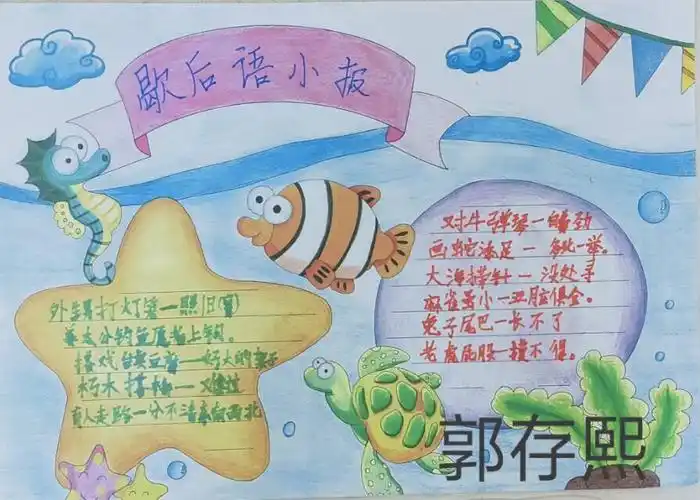 歇后语小报
外生男打灯笼一照旧(舅)
姜太公钓鱼愿者上钩。
搭戏台卖豆腐一好大的架子
朽木搭桥一难过
盲人走路一分不清东南西北
对牛弹琴一白费劲
画蛇添足一多此一举。
大海捞针一没处寻
麻雀虽小一五脏俱全。
兔子尾巴一长不了
老虎屁股一摸不得。
郭存熙